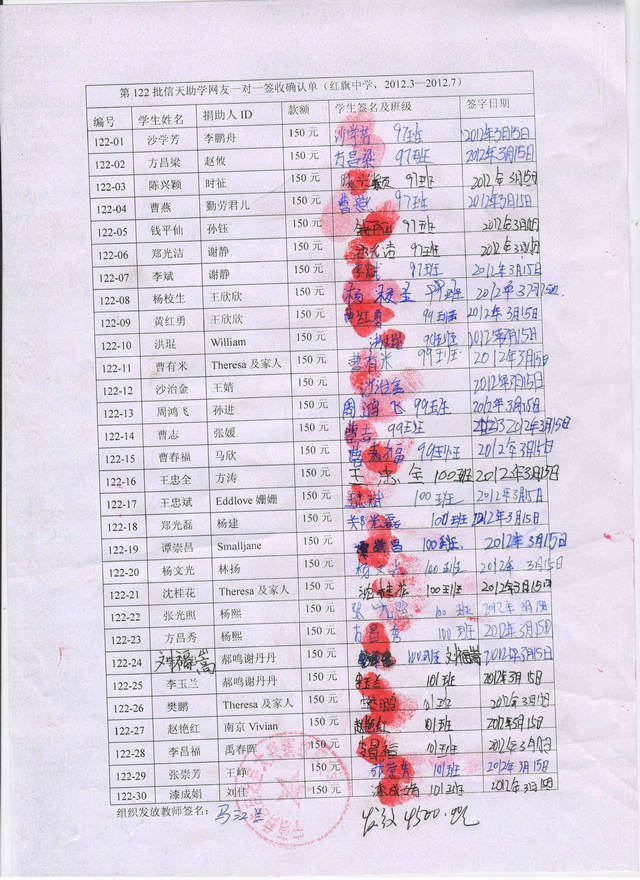 第122批信天助学网友一对一签收确认单（红旗中学，2012.3—2012.7）
编号 学生姓名 捐助人ID 款额 学生签名及班级 签字日期
122-01 沙学芳 李鹏舟 150元 沙学芳 97班 2012年3月15日
122-02 方昌梁 赵攸 150元 方昌梁 97班 2012年3月15日
122-03 陈兴颖 时征 150元 陈兴颖 97班 2012年3月15日
122-04 曹燕 勤劳君儿 150元 曹燕 97班 2012年3月15日
122-05 钱平仙 孙钰 150元 97班 2012年3月15日
122-06 郑光洁 谢静 150元 郑光洁 97班 2012年3月15日
122-07 李斌 谢静 150元 李斌 97班 2012年3月15日
122-08 杨校生 王欣欣 150元 杨校生 2012年3月15日
122-09 黄红勇 王欣欣 150元 黄红勇 99班 2012年3月15日
122-10 洪琨 William 150元 洪琨 99班 2012年3月15日
122-11 曹有米 Theresa及家人 150元 曹有米 99班 2012年3月15日
122-12 沙治金 王婧 150元 沙治金 2012年3月15日
122-13 周鸿飞 孙进 150元 周鸿飞 99班 2012年3月15日
122-14 曹志 张媛 150元 曹志 99班 2012年3月15日
122-15 曹春福 马欣 150元 曹春福 99班 2012年3月15日
122-16 王忠全 方涛 150元 王忠全 100班 2012年3月15日
122-17 王忠斌 Eddlove姗姗 150元 王忠斌 100班 2012年3月15日
122-18 郑光磊 杨建 150元 郑光磊 100班 2012年3月15日
122-19 谭崇昌 Smalljane 150元 谭崇昌 100班 2012年3月15日
122-20 杨文光 林扬 150元 杨文光 100班 2012年3月15日
122-21 沈桂花 Theresa及家人 150元 沈桂花 100班 2012年3月15日
122-22 张光照 杨熙 150元 张光照 100班 2012年3月15日
122-23 方昌秀 杨熙 150元 方昌秀 100班 2012年3月15日
122-24 刘福嵩 郝鸣谢丹丹 150元 100班 刘福嵩 2012年3月15日
122-25 李玉兰 郝鸣谢丹丹 150元 李玉兰 101班 2012年3月15日
122-26 樊鹏 Theresa及家人 150元 樊鹏 101班 2012年3月15日
122-27 赵艳红 南京Vivian 150元 赵艳红 101班 2012年3月15日
122-28 李昌福 禹春晖 150元 李昌福 101班 2012年3月15日
122-29 张崇芳 王峥 150元 张崇芳 101班 2012年3月15日
122-30 漆成娟 刘佳 150元 漆成娟 101班 2012年3月15日
组织发放教师签名： 马江兰 4500